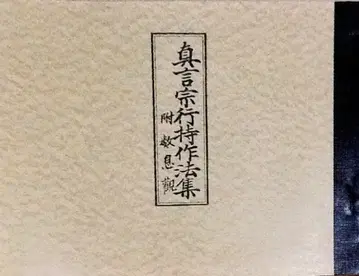 真言宗行持作法集
附数息観